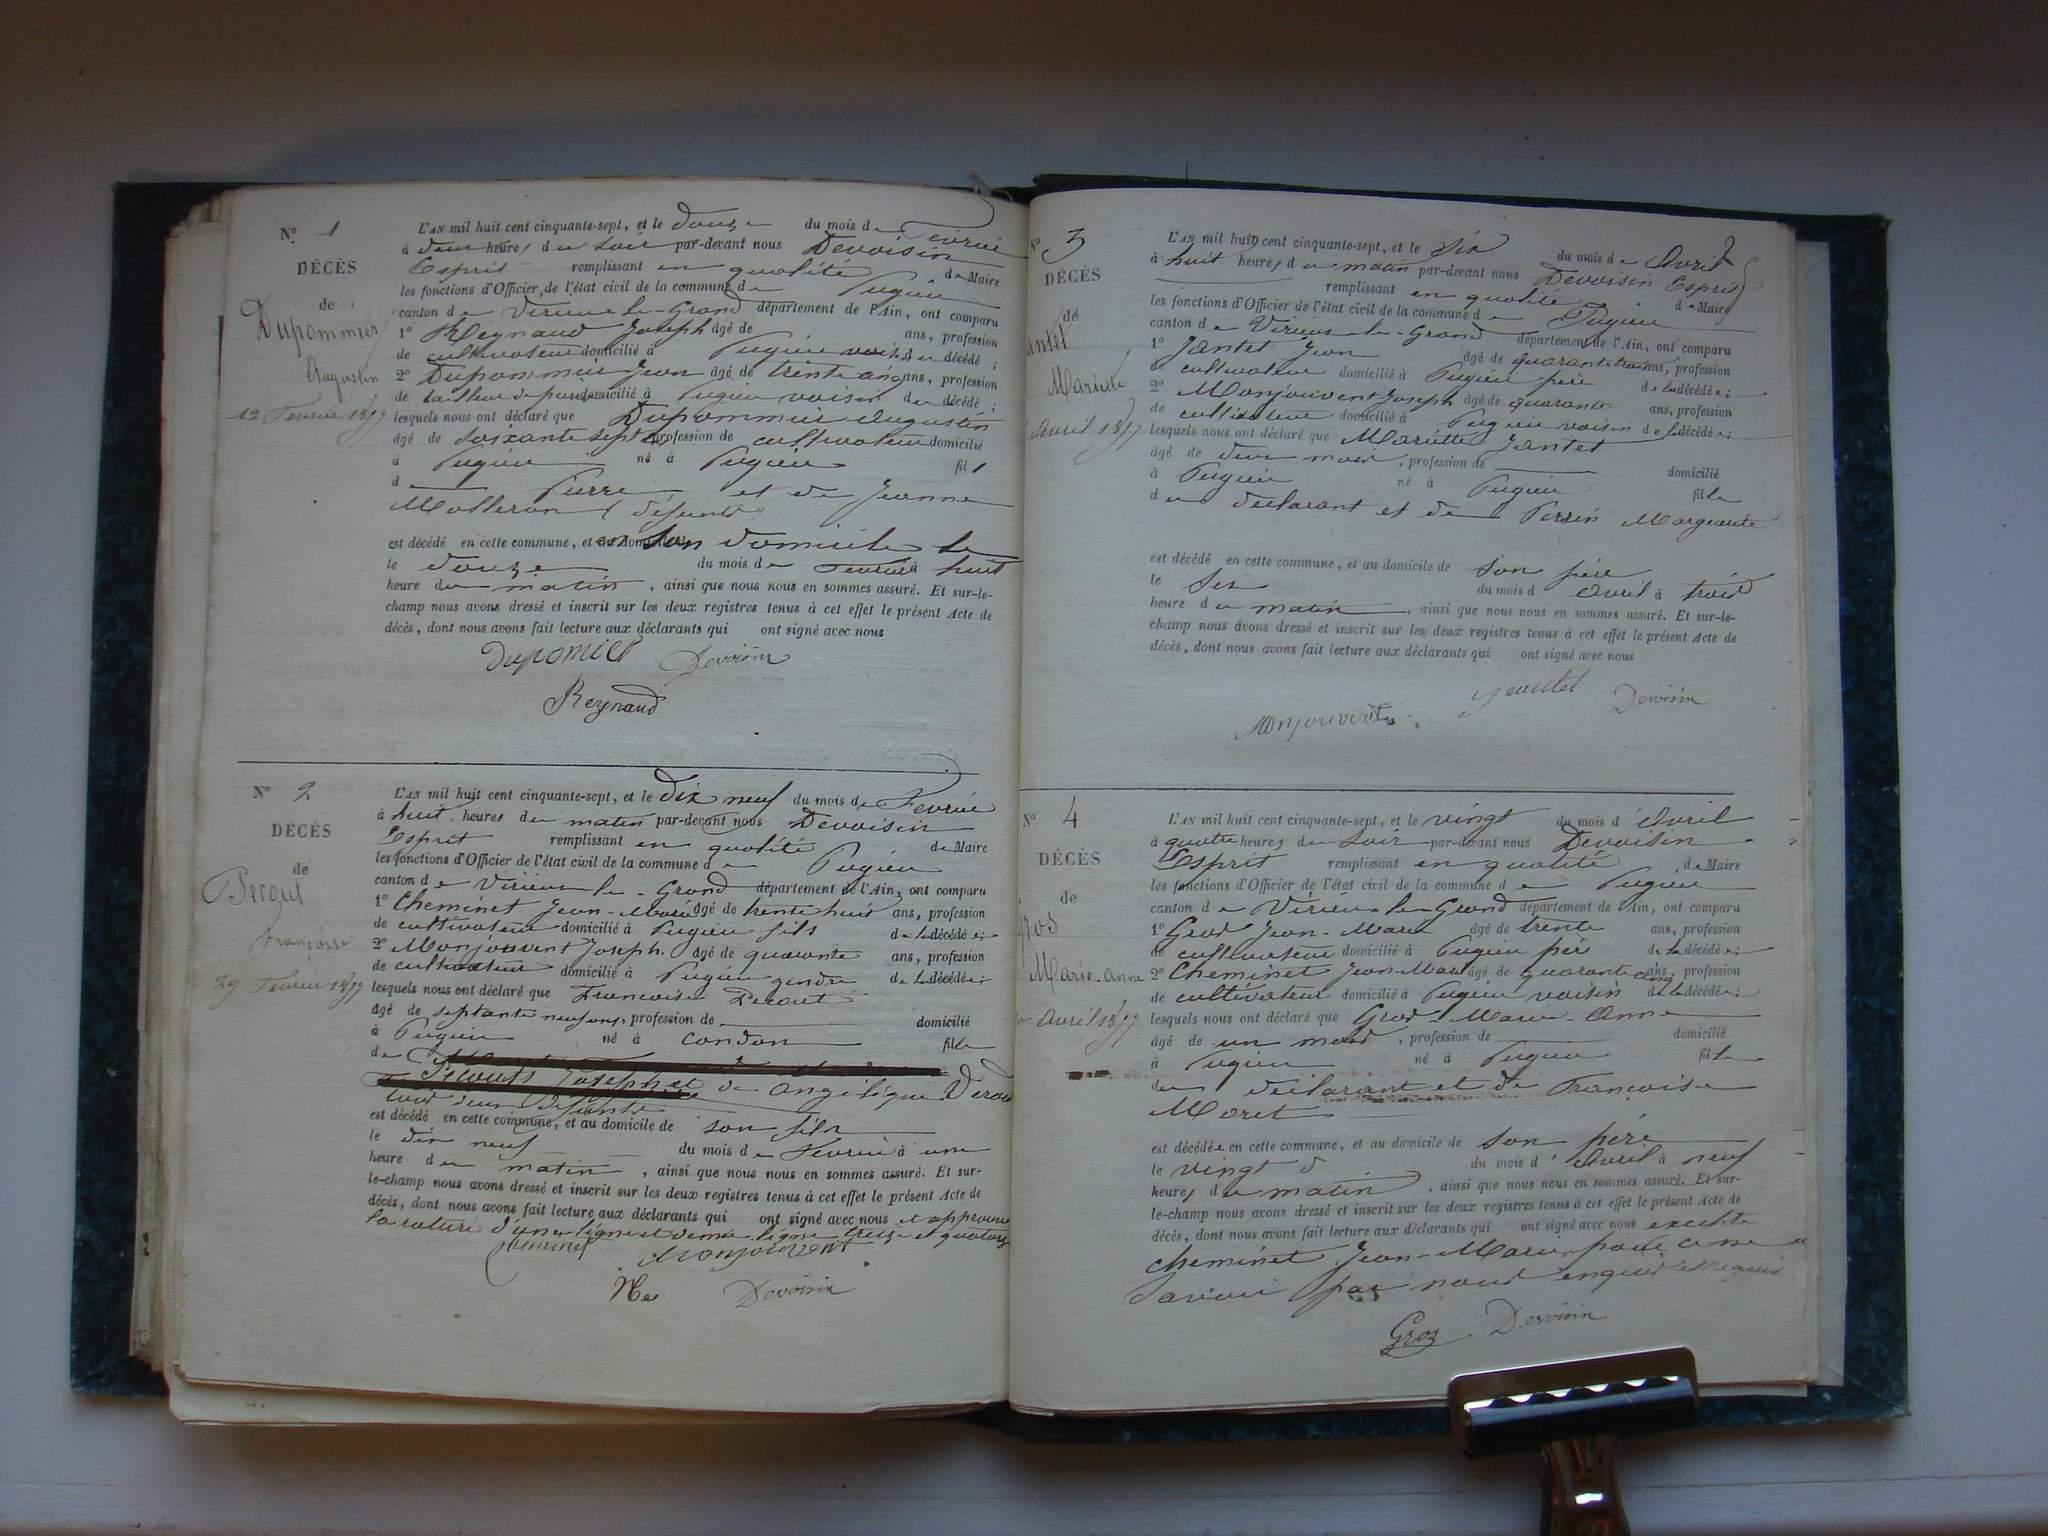 N° 1
DÉCÈS
de
Dupommier
Augustin
12 Fevrier 1857
L'AN mil huit cent cinquante-sept, et le douze du mois de Fevrier
à deux heures du soir par-devant nous Devoisin
Esprit remplissant en qualité de Maire
les fonctions d'Officier de l'état civil de la commune de Pugieu
canton de Virieu-le-Grand département de l'Ain, ont comparu
1° Reynaud Joseph âgé de ans, profession
de cultivateur domicilié à Pugieu voisin du décédé ;
2° Dupommier Jean âgé de trente cinq ans, profession
de tailleur de pierre domicilié à Pugieu voisin du décédé ;
lesquels nous ont déclaré que Dupommier Augustin
âgé de soixante sept profession de cultivateur domicilié
à Pugieu né à Pugieu fils
de Pierre et de Jeanne
Molleron défunts
est décédé en cette commune, et en son domicile le
le douze du mois de Fevrier à huit
heure du matin, ainsi que nous nous en sommes assuré. Et sur-le-
champ nous avons dressé et inscrit sur les deux registres tenus à cet effet le présent Acte de
décès, dont nous avons fait lecture aux déclarants qui ont signé avec nous
Dupomier Devoisin
Reynaud
N° 2
DÉCÈS
de
Françoise
29 Fevrier 1857
L'AN mil huit cent cinquante-sept, et le dix neuf du mois de Fevrier
à huit heures du matin par-devant nous Devoisin
Esprit remplissant en qualité de Maire
les fonctions d'Officier de l'état civil de la commune de Pugieu
canton de Virieu-le-Grand département de l'Ain, ont comparu
1° Cheminet Jean-Marie âgé de trente huit ans, profession
de cultivateur domicilié à Pugieu fils de la décédée ;
2° Monjouvent Joseph. âgé de quarante ans, profession
de cultivateur domicilié à Pugieu gendre de la décédée ;
lesquels nous ont déclaré que Françoise
âgé de septante neuf ans, profession de domicilié
à Pugieu né à Condon fille
de
Joseph et de Angélique
tous deux défunts
est décédé en cette commune, et au domicile de son fils
le dix neuf du mois de Fevrier à une
heure du matin, ainsi que nous nous en sommes assuré. Et sur-
le-champ nous avons dressé et inscrit sur les deux registres tenus à cet effet le présent Acte de
décès, dont nous avons fait lecture aux déclarants qui ont signé avec nous et approuvé
la rature d'une ligne et demie ligne treize et quatorze
Cheminet Monjouvent
Devoisin
2
N° 3
DÉCÈS
de
Jantet
Mariette
Avril 1857
L'AN mil huit cent cinquante-sept, et le six du mois de Avril
à huit heures du matin par-devant nous Devoisin Esprit
remplissant en qualité de Maire
les fonctions d'Officier de l'état civil de la commune de Pugieu
canton de Virieu-le-Grand département de l'Ain, ont comparu
1° Jantet Jean âgé de quarante trois ans, profession
de cultivateur domicilié à Pugieu père de la décédée ;
2° Monjouvent Joseph âgé de quarante ans, profession
de cultivateur domicilié à Pugieu voisin de la décédée ;
lesquels nous ont déclaré que Mariette Jantet
âgé de deux mois, profession de domicilié
à Pugieu né à Pugieu fille
du declarant et de Perrin Marguerite
est décédé en cette commune, et au domicile de son père
le six du mois d Avril à trois
heure du matin, ainsi que nous nous en sommes assuré. Et sur-le-
champ nous avons dressé et inscrit sur les deux registres tenus à cet effet le présent Acte de
décès, dont nous avons fait lecture aux déclarants qui ont signé avec nous
Jeantet Devoisin
Monjouvent
N° 4
DÉCÈS
de
Gros
Marie-Anne
Avril 1857
L'AN mil huit cent cinquante-sept, et le vingt du mois d'Avril
à quatre heures du soir par-devant nous Devoisin
Esprit remplissant en qualité de Maire
les fonctions d'Officier de l'état civil de la commune de Pugieu
canton de Virieu-le-Grand département de l'Ain, ont comparu
1° Gros Jean-Marie âgé de trente ans, profession
de cultivateur domicilié à Pugieu père de la décédée ;
2° Cheminet Jean-Marie âgé de quarante cinq ans, profession
de cultivateur domicilié à Pugieu voisin de la décédée ;
lesquels nous ont déclaré que Gros Marie-Anne
âgé de un mois, profession de domicilié
à Pugieu né à Pugieu fille
du déclarant et de Françoise
Moret
est décédée en cette commune, et au domicile de son père
le vingt du mois d'Avril à neuf
heures du matin, ainsi que nous nous en sommes assuré. Et sur-
le-champ nous avons dressé et inscrit sur les deux registres tenus à cet effet le présent Acte de
décès, dont nous avons fait lecture aux déclarants qui ont signé avec nous excepté
Cheminet Jean-Marie pour ce ne
savoir par nous enquis et requis
Groz Devoisin